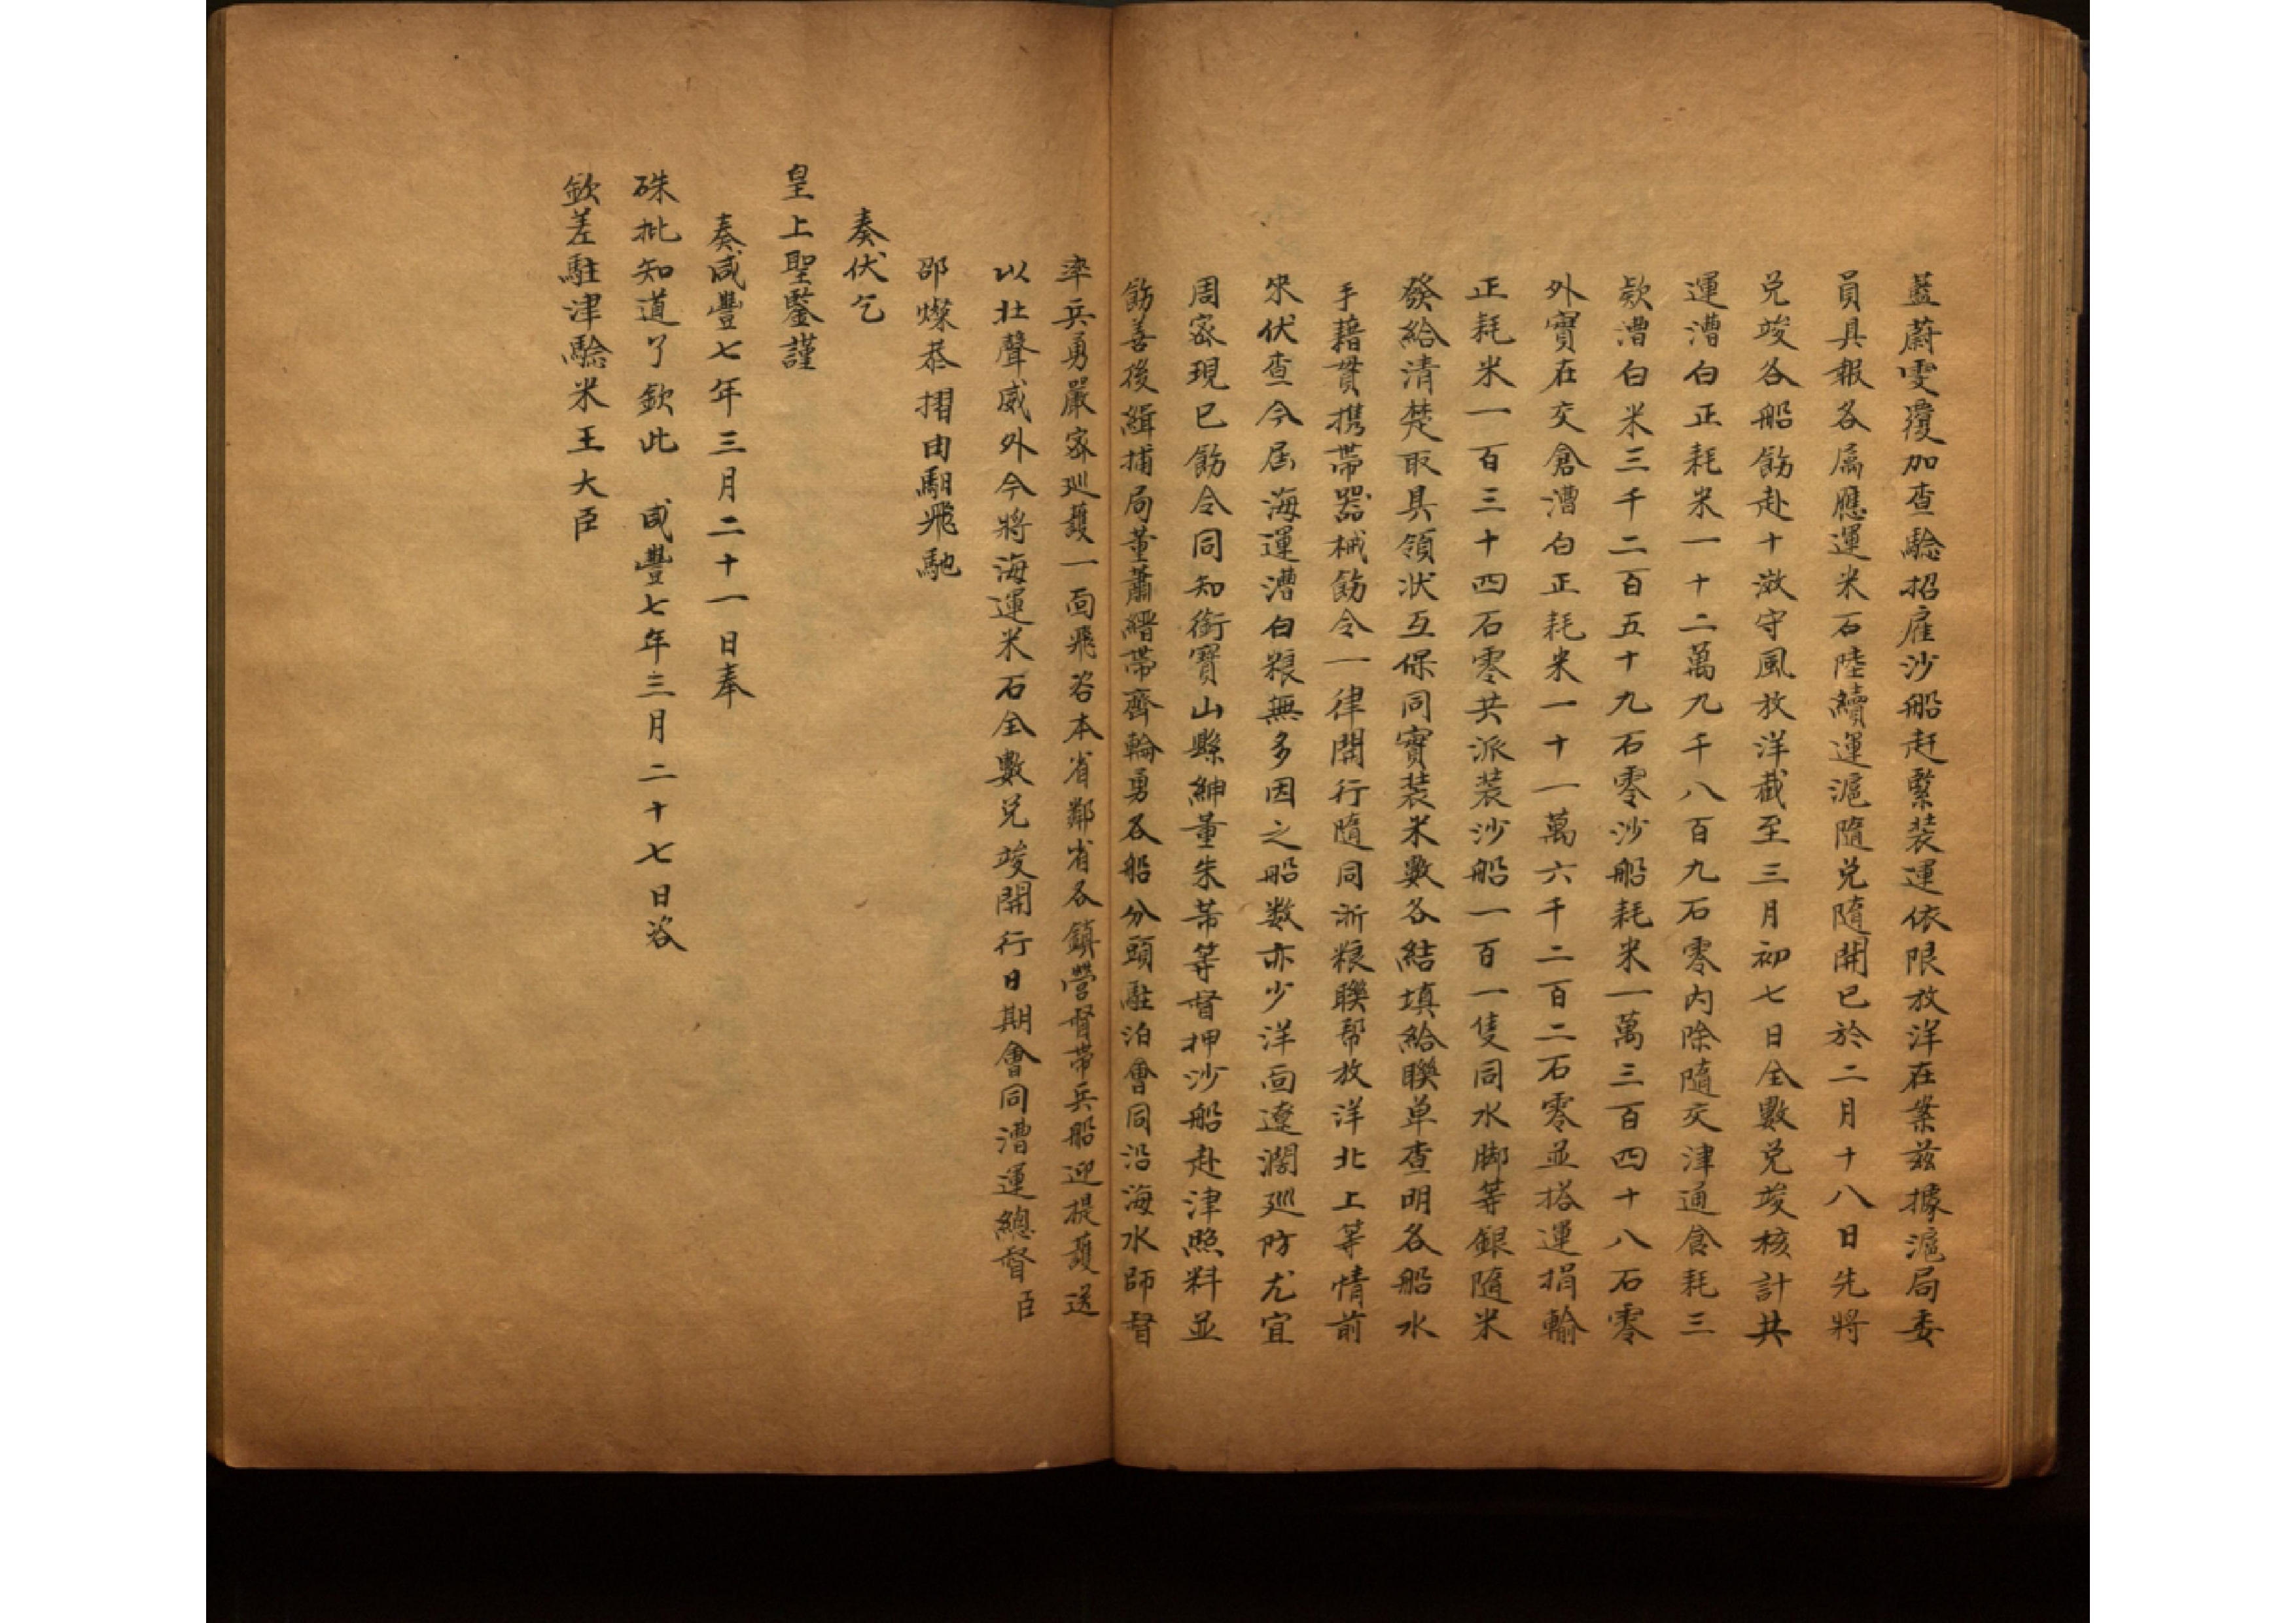 藍蔚雯覆加查驗招雇沙船赶緊裝運依限放洋在案茲據滬局委
員具報各属應運米石陸續運滬隨兑隨開已於二月十八日先將
兑竣各船飭赴十滧守風放洋截至三月初七日全數兑竣核計共
運漕白正耗米一十二萬九千八百九石零內除隨交津通食耗三
欵漕白米三千二百五十九石零沙船耗米一萬三百四十八石零
外實在交倉漕白正耗米一十一萬六千二百二石零並搭運捐輸
正耗米一百三十四石零共派裝沙船一百一隻同水脚等銀隨米
發給清楚取具領狀互保同實裝米數各結填給聯单查明各船水
手藉貫携帶器械飭令一律開行隨同浙粮聯帮放洋北上等情前
来伏查今届海運漕白粮無多因之船数亦少洋面遼濶廵防尤宜
周密現已飭令同知銜寶山縣紳董朱芾等督押沙船赴津照料並
飭善後緝捕局董蕭縉帶齊輪勇各船分頭駐泊會同沿海水師督
率兵勇嚴密廵護一面飛咨本省鄰省各鎮營督帶兵船迎提護送
以壮聲威外今將海運米石全數兑竣開行日期會同漕運總督臣
邵燦恭摺由馹飛馳
奏伏乞
皇上聖鑒謹
奏咸豐七年三月二十一日奉
硃批知道了欽此 咸豐七年三月二十七日咨
欽差駐津驗米王大臣